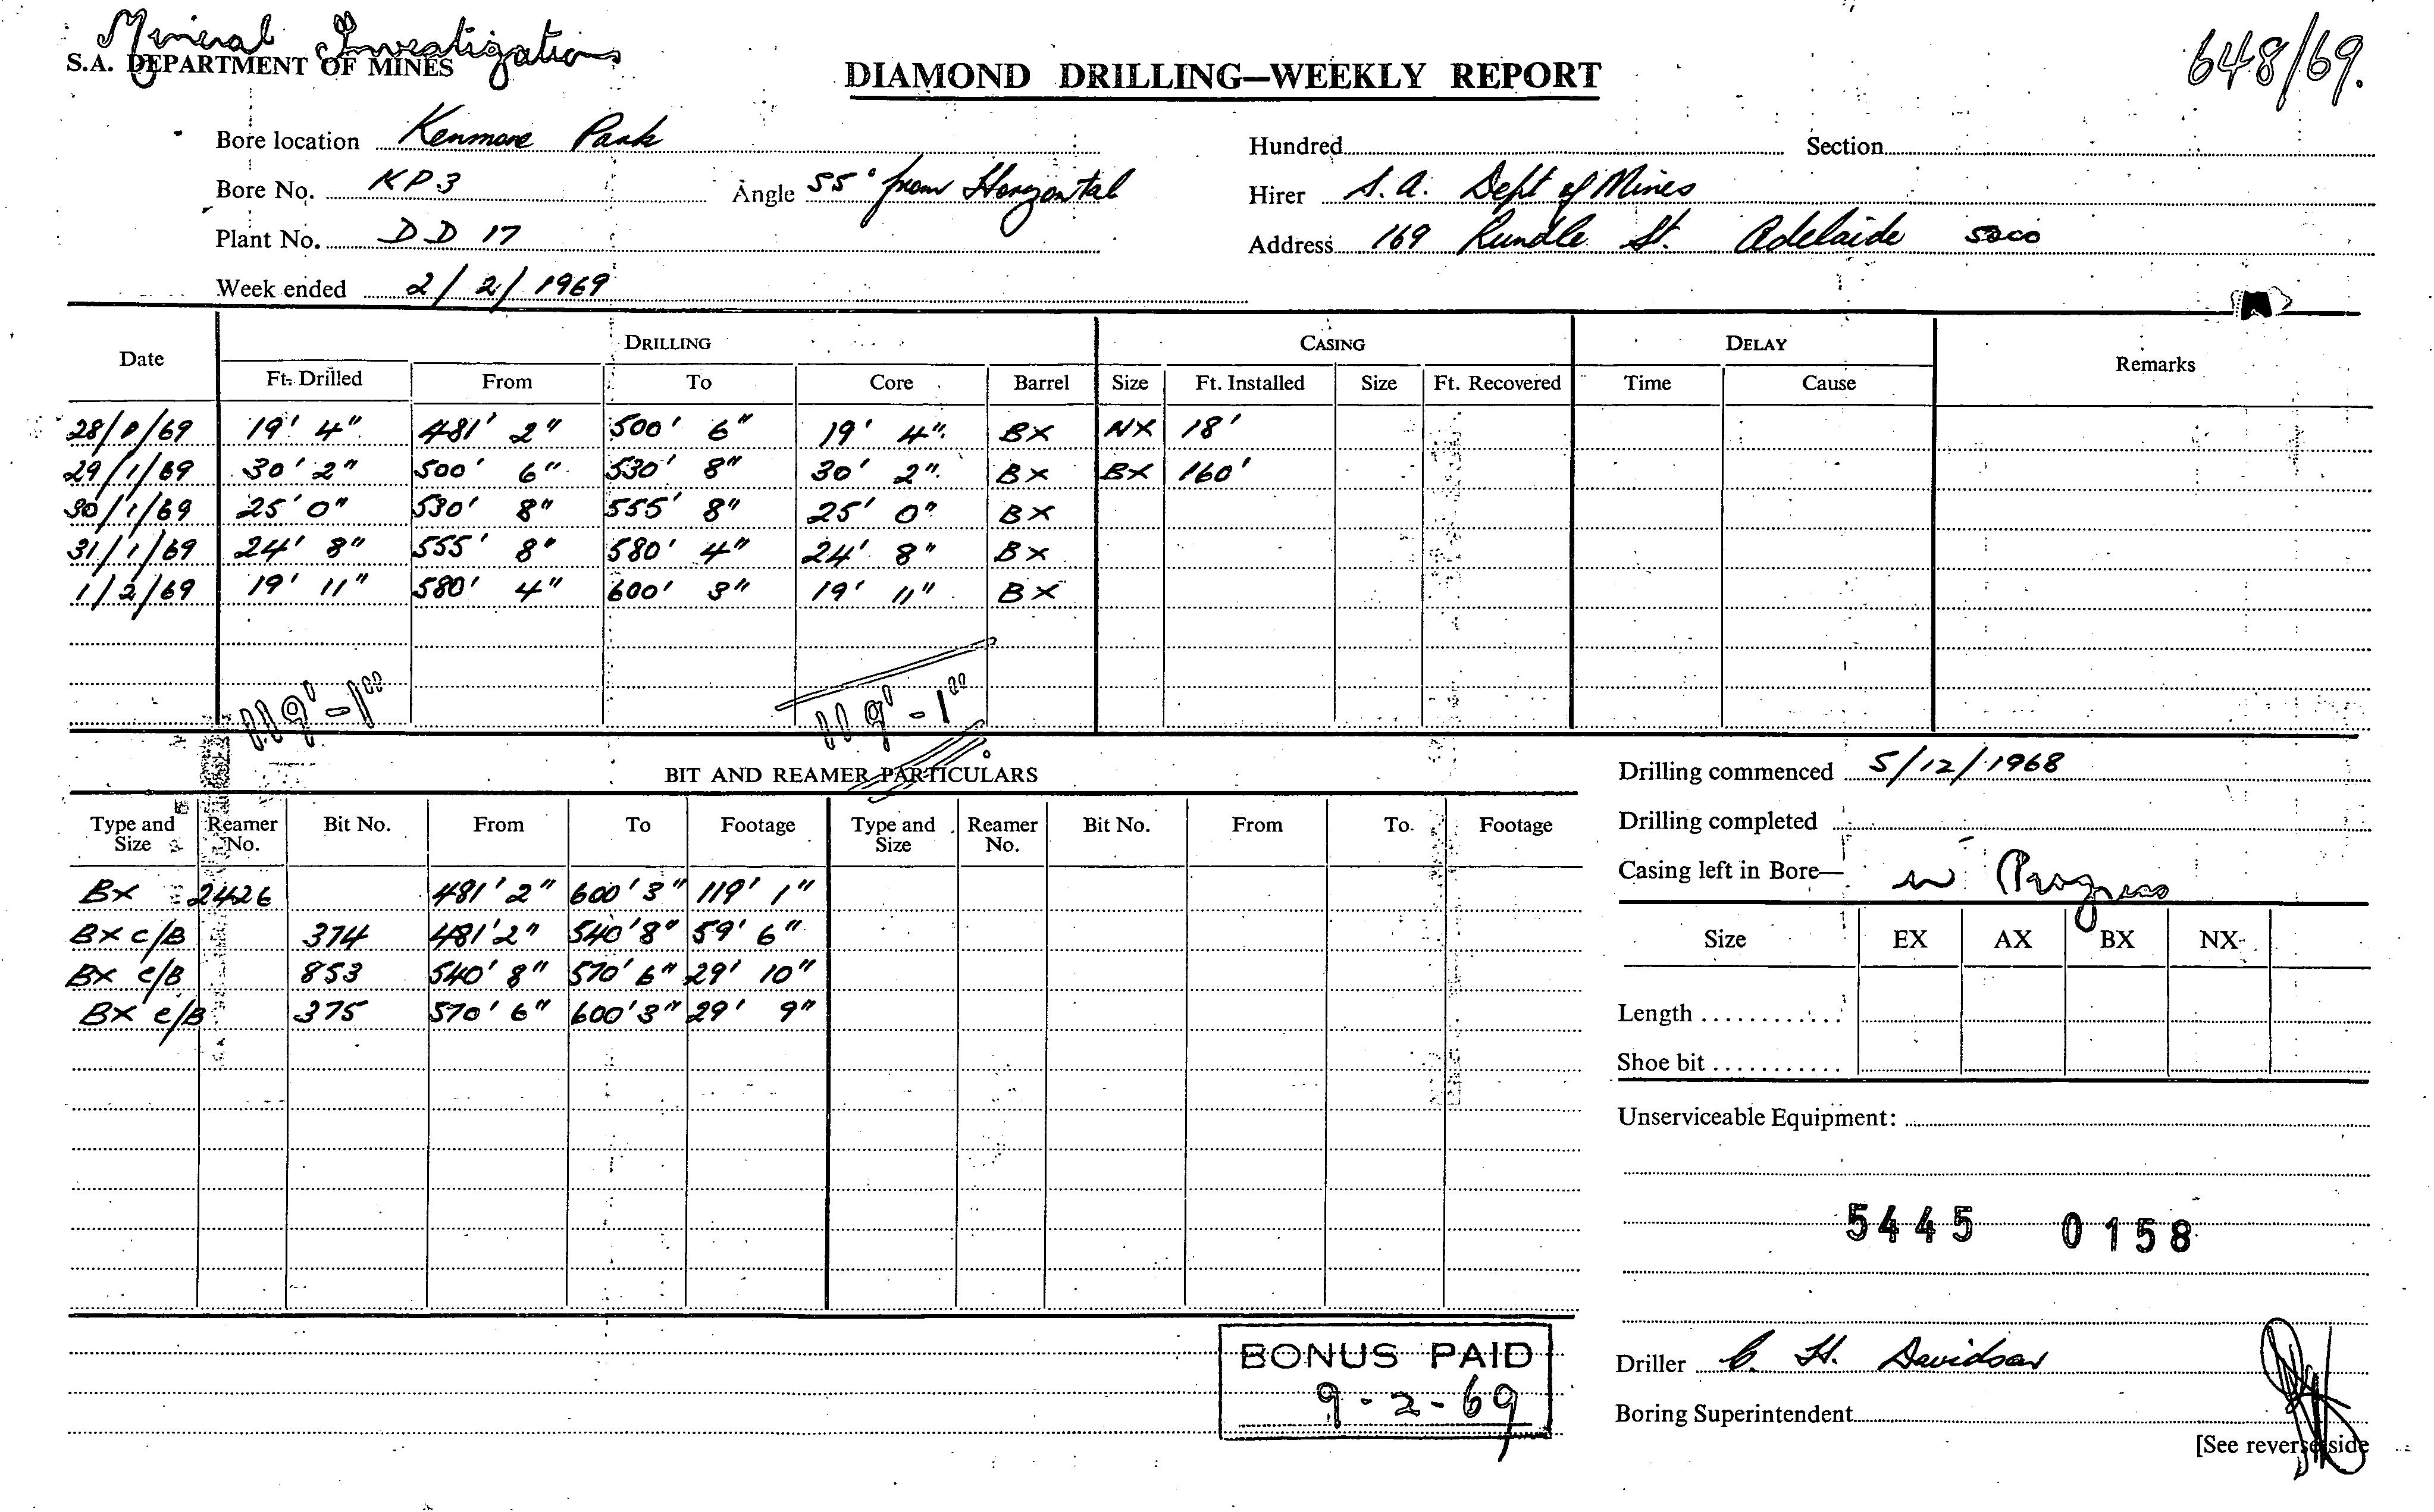 Mineral Investigations
S.A. DEPARTMENT OF MINES
DIAMOND DRILLING—WEEKLY REPORT
648/69.
Bore location Kenmore Park
Hundred Section
Bore No. KP3 Angle 55° from Horizontal
Hirer S.A. Dept of Mines
Plant No. DD 17
Address 169 Rundle St. Adelaide 5000
Week ended 2/2/1969
Date DRILLING CASING DELAY Remarks
Ft. Drilled From To Core Barrel Size Ft. Installed Size Ft. Recovered Time Cause
28/1/69 19' 4" 481' 2" 500' 6" 19' 4" BX NX 18'
29/1/69 30' 2" 500' 6" 530' 8" 30' 2" BX BX 160'
30/1/69 25' 0" 530' 8" 555' 8" 25' 0" BX
31/1/69 24' 8" 555' 8" 580' 4" 24' 8" BX
1/2/69 19' 11" 580' 4" 600' 3" 19' 11" BX
119'-1" 119'-1"
BIT AND REAMER PARTICULARS
Type and Size Reamer No. Bit No. From To Footage Type and Size Reamer No. Bit No. From To Footage
BX 2426 481' 2" 600' 3" 119' 1"
BX c/B 374 481' 2" 540' 8" 59' 6"
BX c/B 853 540' 8" 570' 6" 29' 10"
BX c/B 375 570' 6" 600' 3" 29' 9"
Drilling commenced 5/12/1968
Drilling completed
Casing left in Bore— in Progress
Size EX AX BX NX
Length ...........
Shoe bit ...........
Unserviceable Equipment:
5445 0158
BONUS PAID
9-2-69
Driller C. H. Davidson
Boring Superintendent
[See reverse side